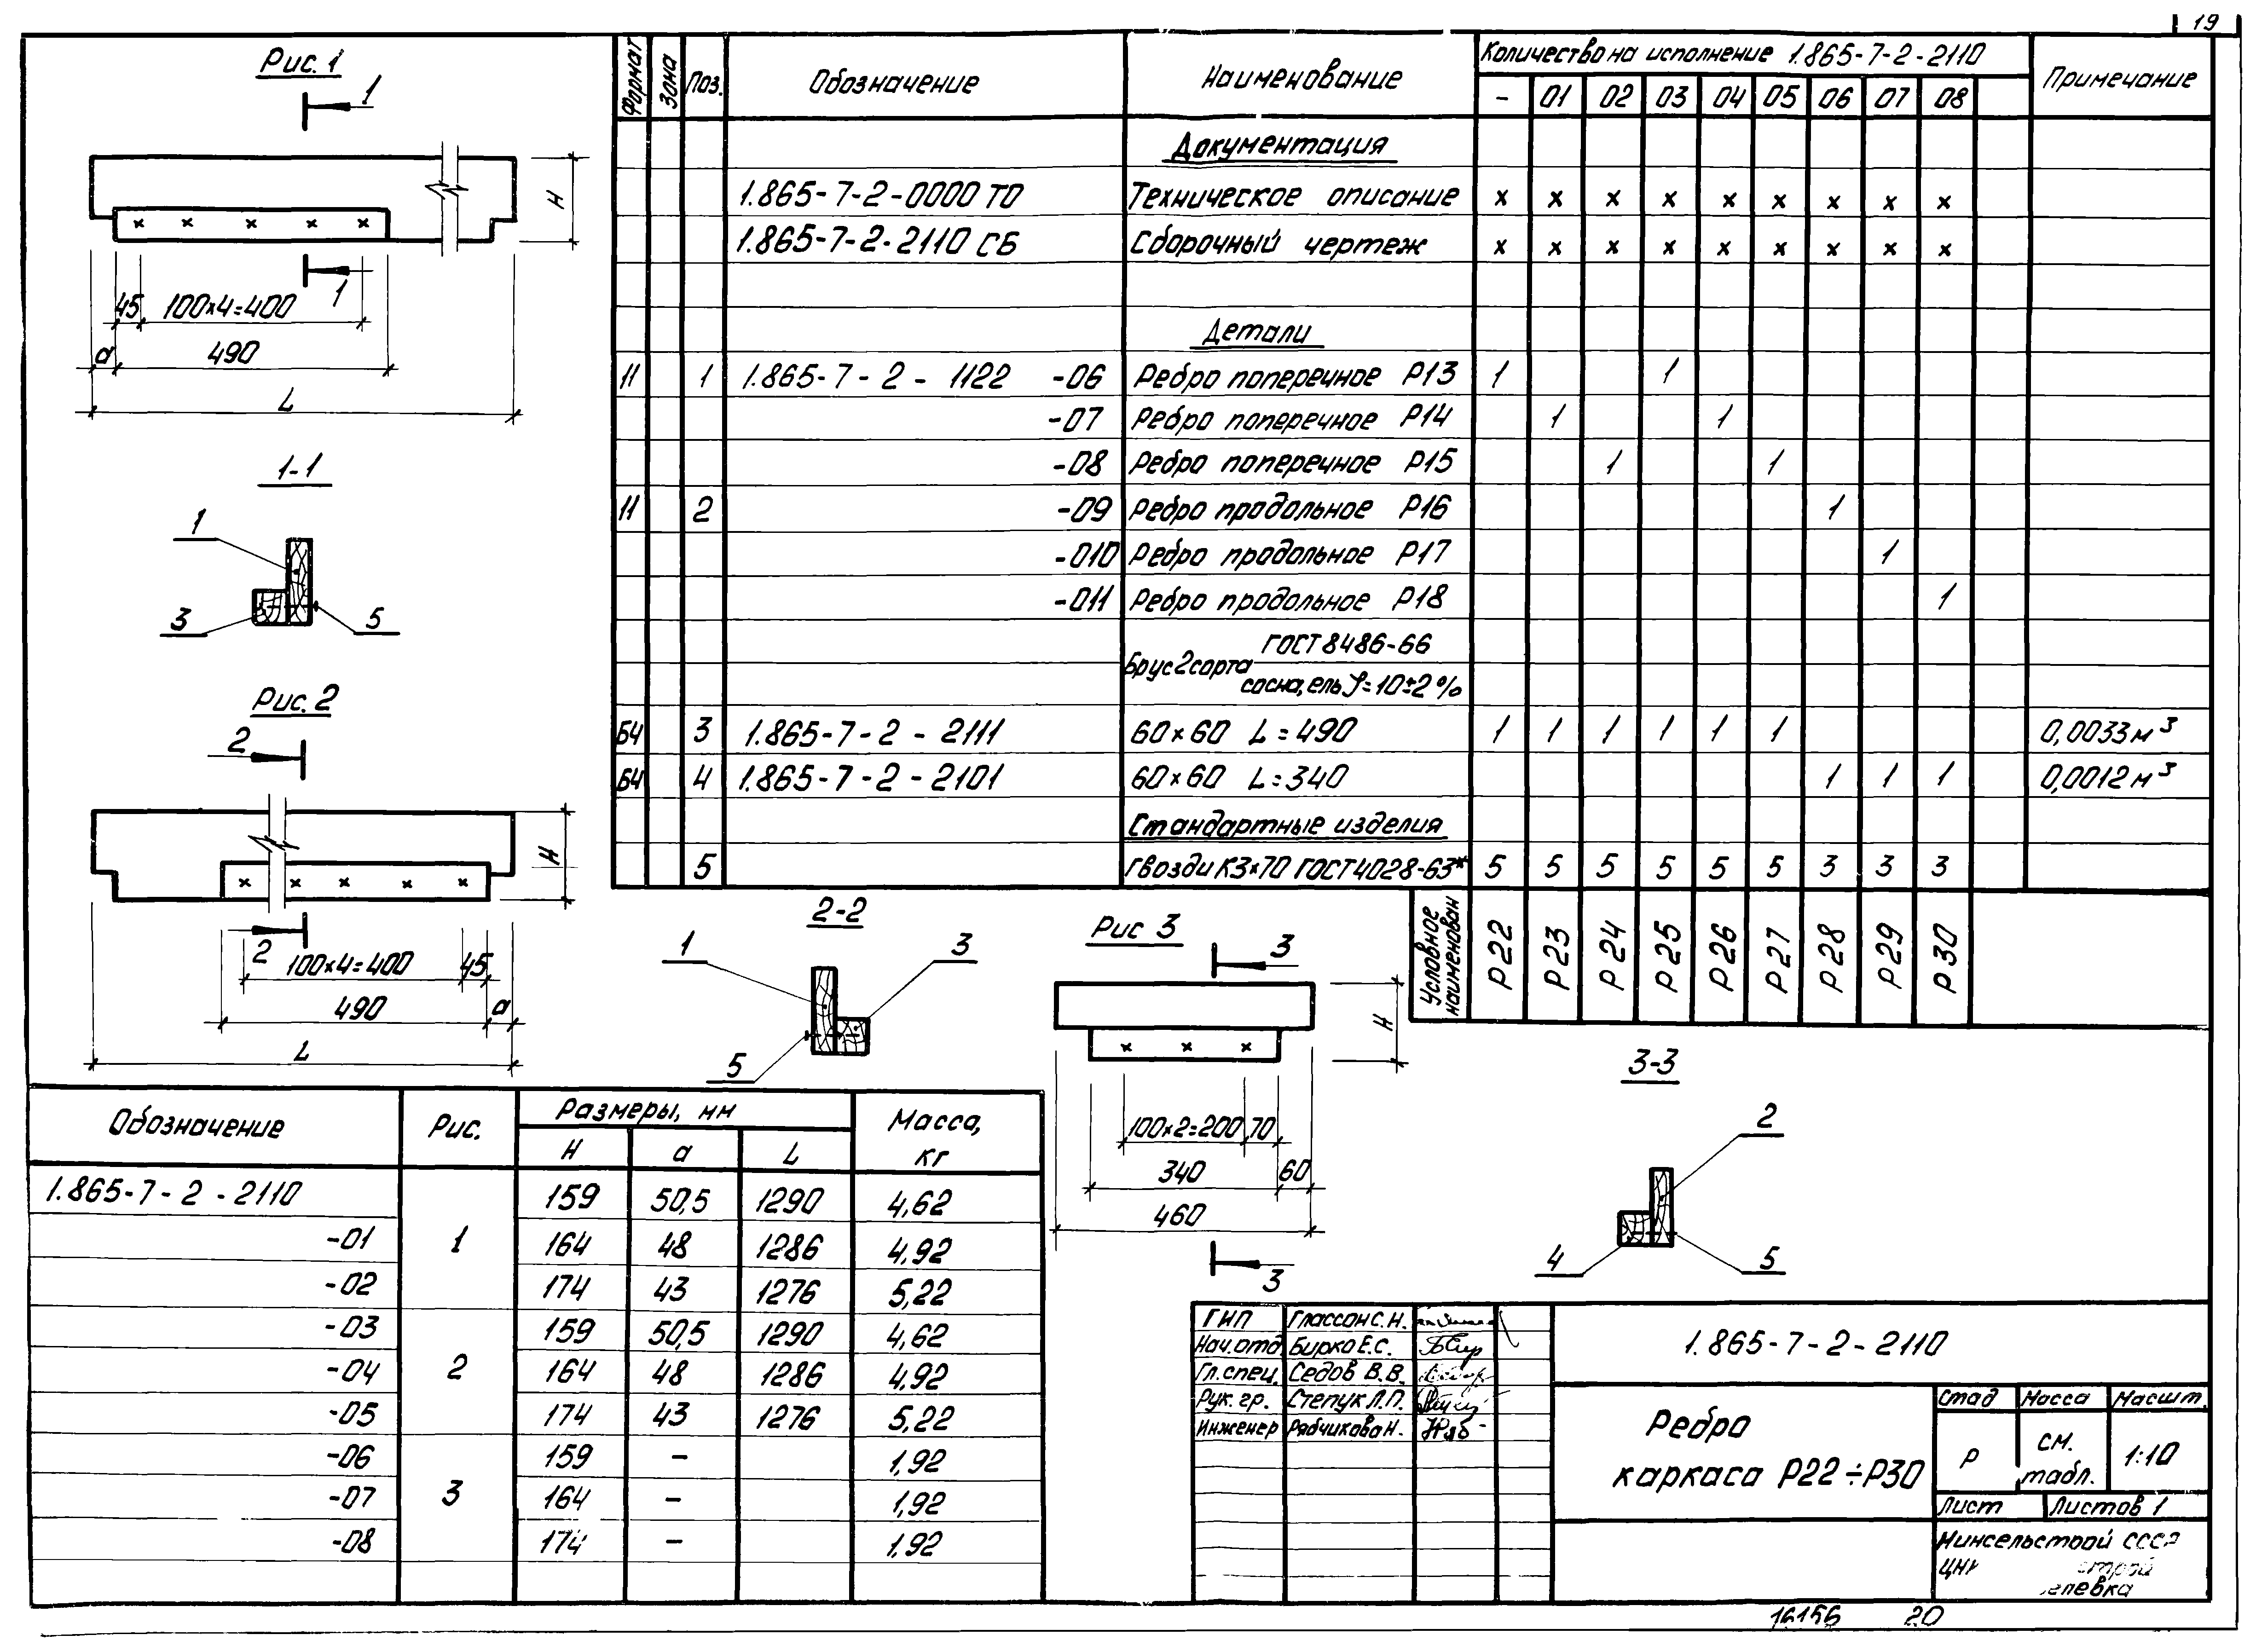 19
Рис. 1
1
H
45 100×4=400 1
a 490
L
1-1
1
3 5
Рис. 2
2
H
2 100×4=400 45
490 a
L
Формат Зона Поз. Обозначение Наименование Количество на исполнение 1.865-7-2-2110 Примечание
- 01 02 03 04 05 06 07 08
Документация
1.865-7-2-0000 ТО Техническое описание х х х х х х х х х
1.865-7-2-2110 СБ Сборочный чертеж х х х х х х х х х
Детали
11 1 1.865-7-2-1122 -06 Ребро поперечное Р13 1 1
-07 Ребро поперечное Р14 1 1
-08 Ребро поперечное Р15 1 1
11 2 -09 Ребро продольное Р16 1
-010 Ребро продольное Р17 1
-011 Ребро продольное Р18 1
ГОСТ 8486-66
Брус 2 сорта
сосна, ель φ=10±2%
БЧ 3 1.865-7-2-2111 60×60 L=490 1 1 1 1 1 1 0,0033 м³
БЧ 4 1.865-7-2-2101 60×60 L=340 1 1 1 0,0012 м³
Стандартные изделия
5 Гвозди К3×70 ГОСТ 4028-63* 5 5 5 5 5 5 3 3 3
Условное наименован Р22 Р23 Р24 Р25 Р26 Р27 Р28 Р29 Р30
2-2
1 3
5
Рис 3
3
H
100×2=200 70
340 60
460
3
3-3
2
4 5
Обозначение Рис. Размеры, мм Масса, кг
H a L
1.865-7-2-2110 159 50,5 1290 4,62
-01 1 164 48 1286 4,92
-02 174 43 1276 5,22
-03 159 50,5 1290 4,62
-04 2 164 48 1286 4,92
-05 174 43 1276 5,22
-06 159 - 1,92
-07 3 164 - 1,92
-08 174 - 1,92
ГИП Глассон С.Н.
Нач.отд. Бирко Е.С.
Гл.спец. Седов В.В.
Рук.гр. Степук Л.П.
Инженер Рябчикова Н.
1.865-7-2-2110
Ребро
каркаса Р22÷Р30
Стад Масса Масшт.
Р см. табл. 1:10
Лист Листов 1
Минсельстрой СССР
16156 20